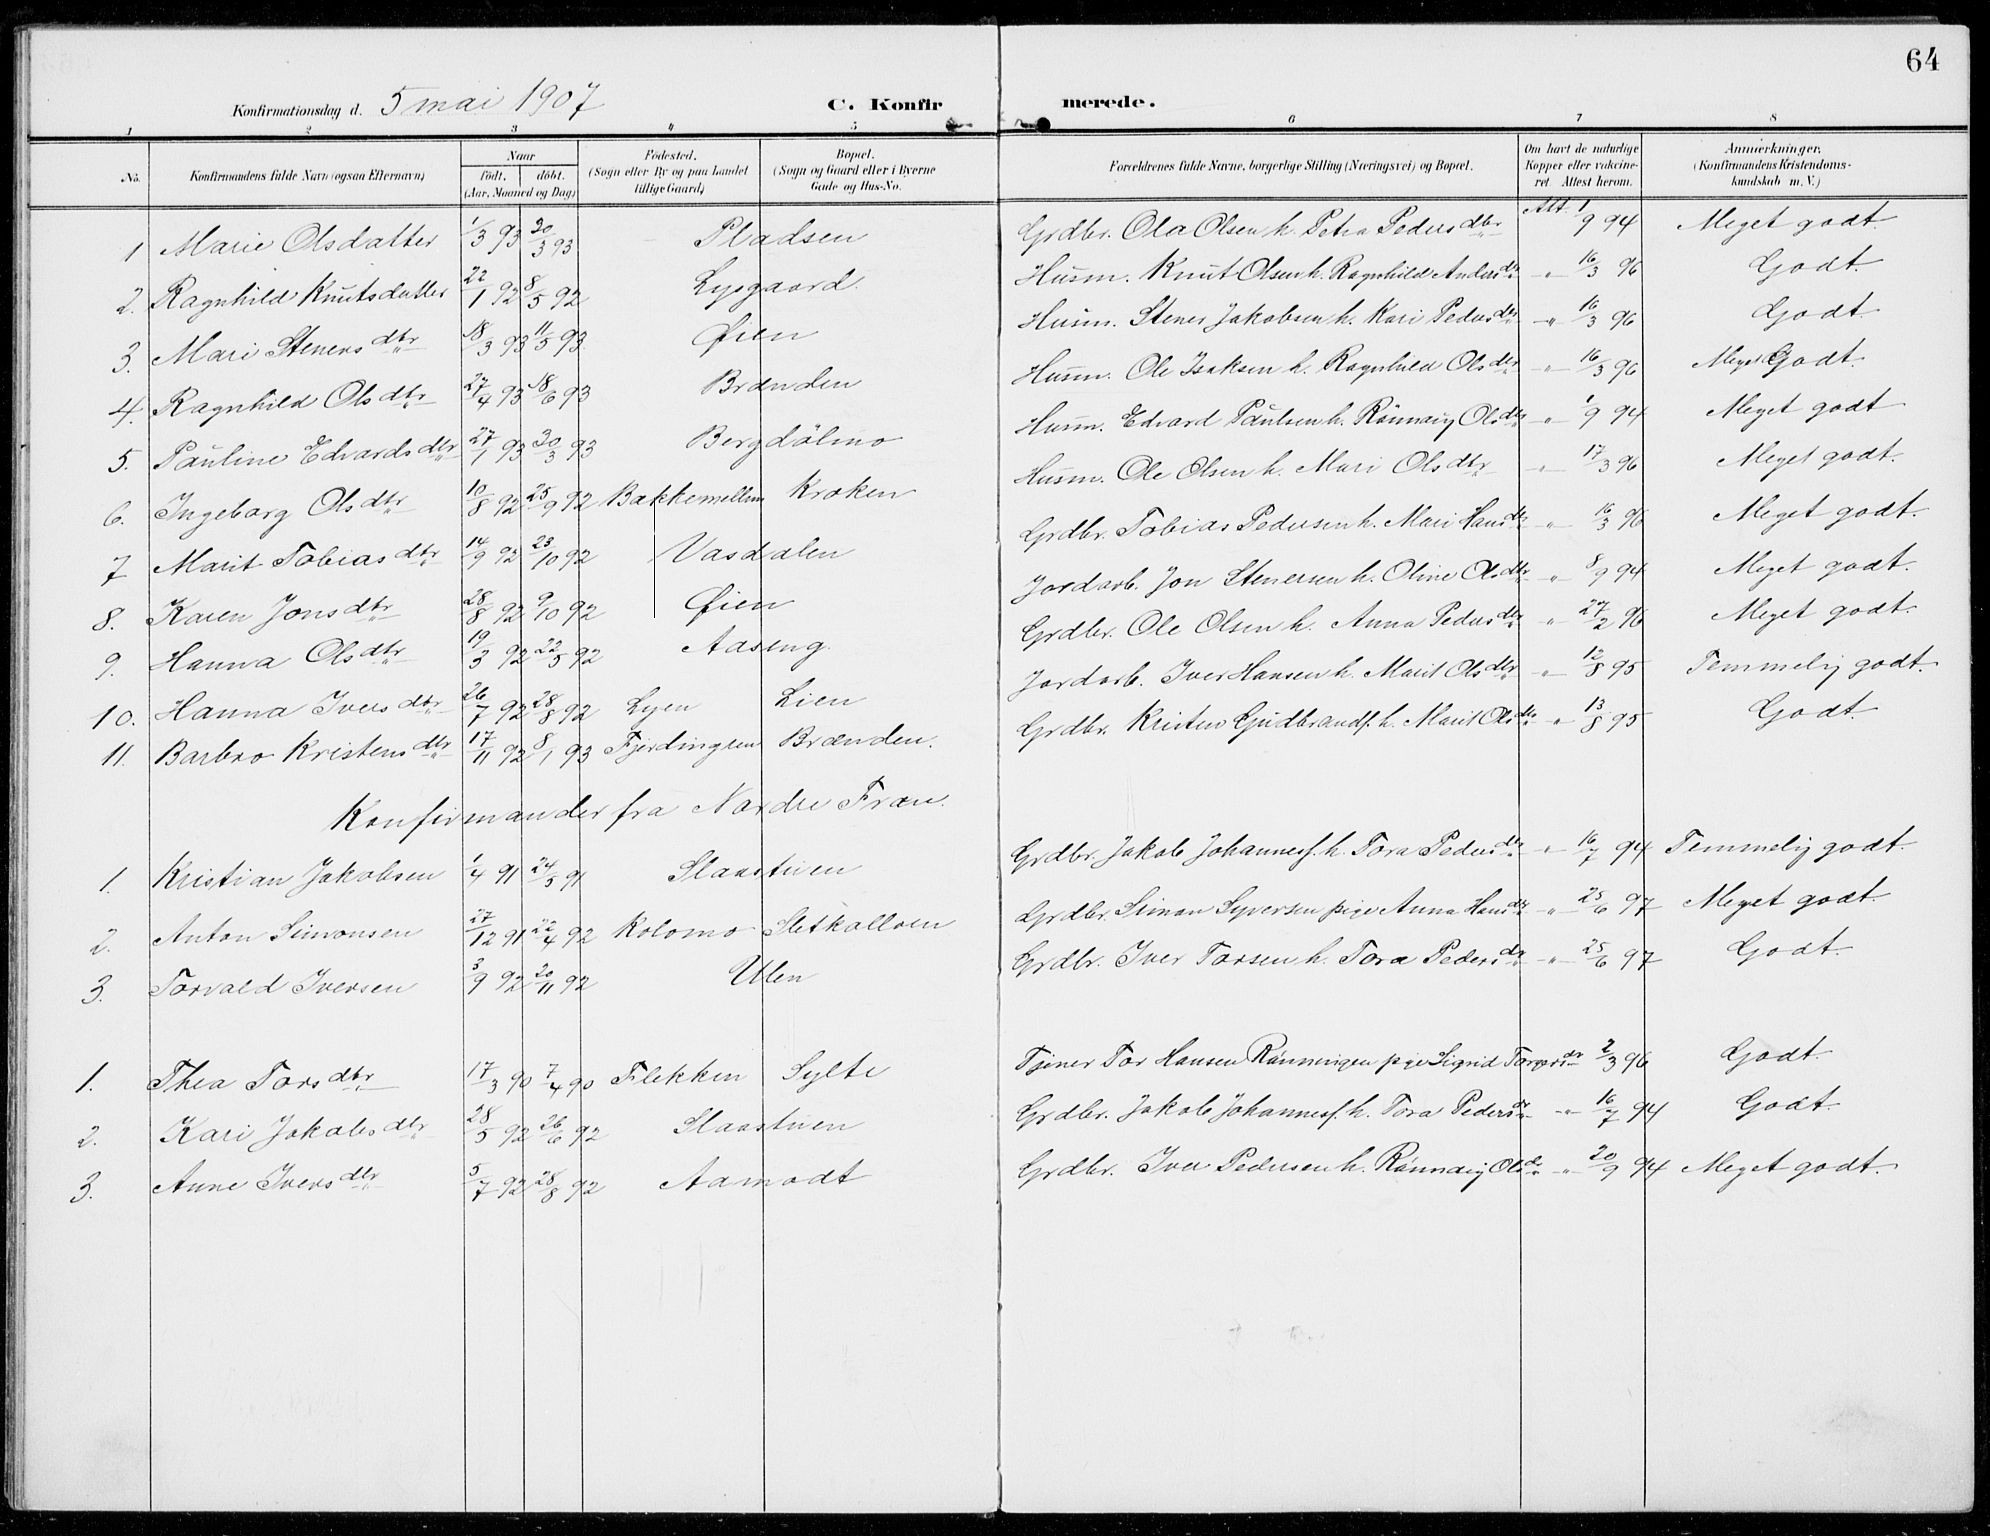 64
Konfirmationsdag d. 5 mai 1907 C. Konfir merede.
1 2 3 4 5 6 7 8
No. Konfirmandens fulde Navn (ogsaa Efternavn) Naar født. døbt. (Aar, Maaned og Dag) Fødested. (Sogn eller By og paa Landet tillige Gaard) Bopæl. (Sogn og Gaard eller i Byerne Gade og Hus-No. Forældrenes fulde Navne, borgerlige Stilling (Næringsvei) og Bopæl. Om havt de naturlige Kopper eller vakcineret. Attest herom. Anmerkninger. (Konfirmandens Kristendomskundskab m. V.)
1 Marie Olsdatter 1/3 93 20/3 93 Pladsen Grdbr. Ola Olsen h. Petra Pedersdtr Att. 1/9 94 Meget godt.
2. Ragnhild Knutsdatter 22/1 92 8/5 92 Lysgaard. Husm. Knut Olsen h. Ragnhild Andersdtr " 16/3 96 Godt.
3. Mari Stenersdtr 18/3 93 11/5 93. Øien Husm. Stener Jakobsen h. Kari Pedersdtr " 16/3 96 Godt.
4. Ragnhild Olsdtr 27/4 93 18/6 93 Brænden Husm. Ole Isaksen h. Ragnhild Olsdtr " 16/3 96 Meget Godt.
5. Pauline Edvardsdtr 27/1 93 30/3 93 Bergdølmo Husm. Edvard Paulsen h. Rønnaug Olsdtr " 1/9 94 Meget godt
6. Ingeborg Olsdtr 10/8 92 25/9 92 Bakkemellem Kroken Husm. Ole Olsen h. Mari Olsdtr " 17/3 96 Meget godt.
7 Marit Tobiasdtr 14/9 92 23/10 92 Vasdalen Grdbr. Tobias Pedersen h. Mari Hansdtr " 16/3 96 Meget godt.
8. Karen Jonsdtr 28/8 92 9/10 92 Øien Jordarb. Jon Stenersen h. Oline Olsdtr " 8/9 94 Meget godt.
9. Hanna Olsdtr 19/3 92 22/5 92 Aaseng. Grdbr. Ole Olsen h. Anna Pedersdtr " 27/2 96 Meget godt.
10. Hanna Iversdtr 26/7 92 28/8 92 Lyen Lien Jordarb. Iver Hansen h. Marit Olsdtr " 12/8 95 Temmelig godt.
11. Barbro Kristensdtr 17/11 92 8/1 93 Fjerdingren Brænden. Grdbr. Kristen Gudbrands. h. Marit Olsdtr " 13/8 95 Godt.
Konfirmander fra Nordre Fron.
1. Kristian Jakobsen 1/4 91 24/5 91 Slaastuen Grdbr. Jakob Johanness. h. Tora Pedersdtr " 16/7 94 Temmelig godt.
2. Anton Simonsen 27/12 91 22/4 92 Kolomo Sletkalloen Grdbr. Simon Syversen pige Anna Hansdtr " 25/6 97 Meget godt.
3. Torvald Iversen 3/9 92 20/11 92 Ulen Grdbr. Iver Torsen h. Tora Pedersdtr " 25/6 97 Godt.
1. Thea Torsdtr 17/3 90 7/4 90 Flekken Sylte Tjener Tor Hansen Rønningen pige Sigrid Torgersdtr 2/3 96 Godt.
2. Kari Jakobsdtr 28/5 92 26/6 92 Slaastuen Grdbr. Jakob Johanness. h. Tora Pedersdtr " 16/7 94 Godt.
3. Anne Iversdtr 5/7 92 28/8 92 Aamodt Grdbr. Iver Pedersen h. Rønnaug Olsdtr " 20/9 94 Meget godt.